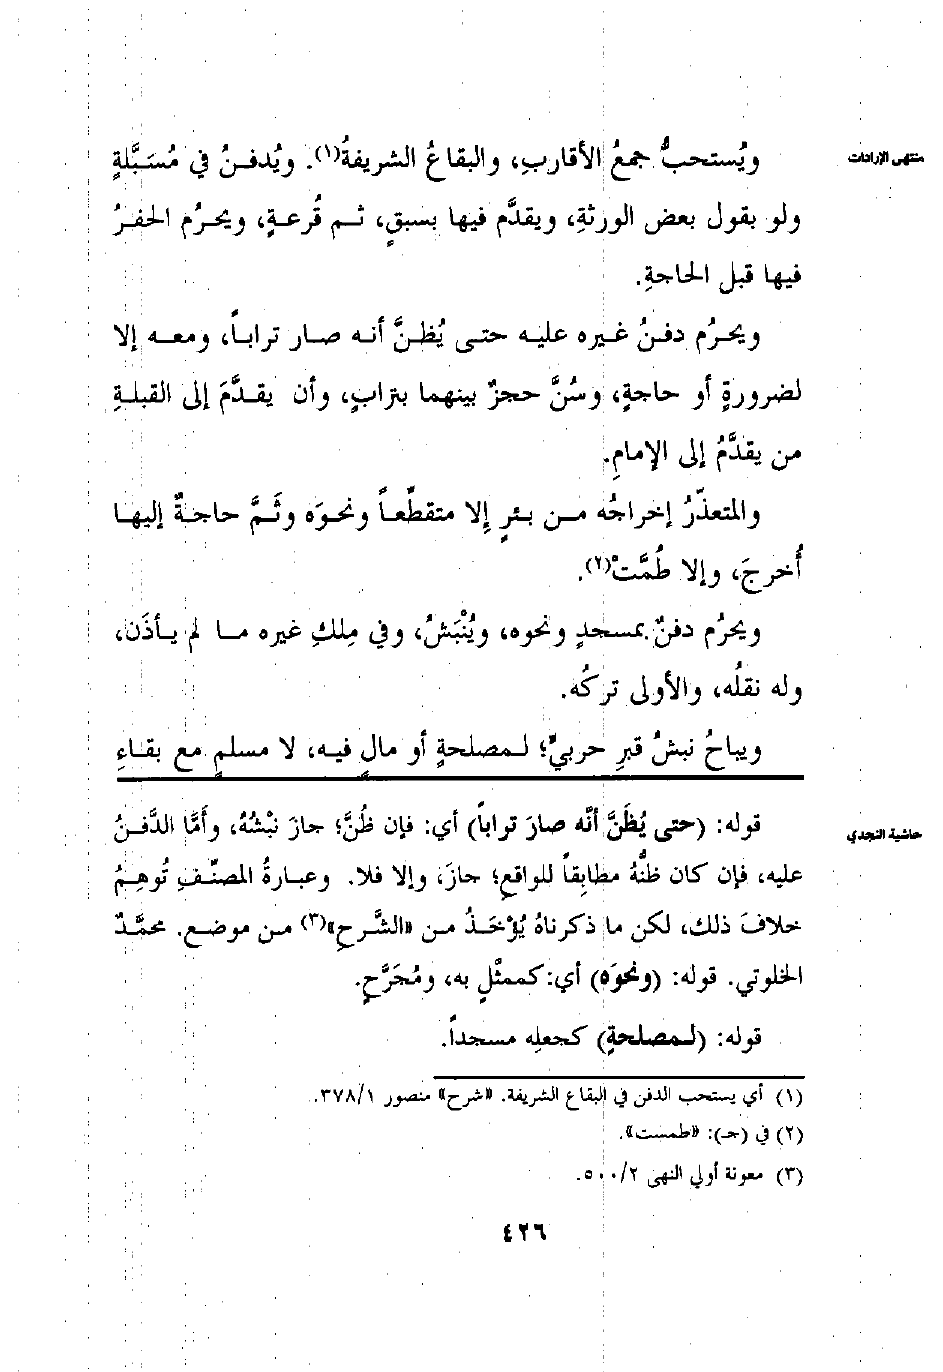 منتهى الإرادات
ويُستحبُّ جمعُ الأقاربِ، والبقاعُ الشريفةُ(١). ويُدفنُ في مُسَبَّلةٍ
ولو بقول بعض الورثةِ، ويقدَّم فيها بسبقٍ، ثم قُرعةٍ، ويحرُم الحفرُ
فيها قبل الحاجةِ.
ويحرُم دفنُ غيره عليه حتى يُظنَّ أنه صار تراباً، ومعه إلا
لضرورةٍ أو حاجةٍ، وسُنَّ حجزٌ بينهما بترابٍ، وأن يقدَّمَ إلى القبلةِ
من يقدَّمُ إلى الإمامِ.
والمتعذّرُ إخراجُه من بئرٍ إلا متقطّعاً ونحوَه وثَمَّ حاجةٌ إليها
أُخرجَ، وإلا طُمَّتْ(٢).
ويحرُم دفنٌ بمسجدٍ ونحوه، ويُنْبَشُ، وفي مِلكِ غيره ما لم يأذَن،
وله نقلُه، والأولى تركُه.
ويباحُ نبشُ قبرِ حربيٍّ؛ لمصلحةٍ أو مالٍ فيه، لا مسلمٍ مع بقاءِ
حاشية النجدي
قوله: (حتى يُظَنَّ أنَّه صارَ تراباً) أي: فإن ظُنَّ؛ جازَ نبْشُهُ، وأمَّا الدَّفنُ
عليه، فإن كان ظنُّهُ مطابِقاً للواقعِ؛ جازَ، وإلا فلا. وعبارةُ المصنّفِ تُوهِمُ
خلافَ ذلك، لكن ما ذكرناهُ يُؤْخَذُ من «الشَّرحِ»(٣) من موضع. محمَّدٌ
الخلوتي. قوله: (ونحوَه) أي: كممثَّلٍ به، ومُجَرَّحٍ.
قوله: (لمصلحةٍ) كجعلِه مسجداً.
(١) أي يستحب الدفن في البقاع الشريفة. «شرح» منصور ٣٧٨/١.
(٢) في (جـ): «طمست».
(٣) معونة أولي النهى ٥٠٠/٢.
٤٢٦